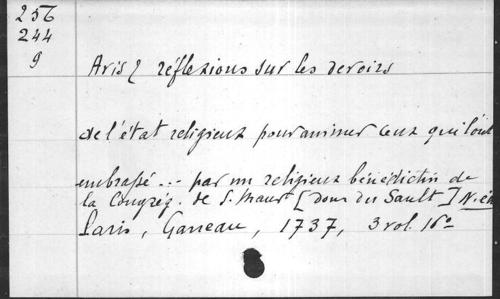 256
244
9
Avis & réflexions sur les devoirs
de l'état religieux pour animer ceux qui l'ont
embrassé ... par un religieux bénédictin de
la Congrég. de S. Maur [dom du Sault] N. éd
Paris, Garreau, 1737, 3 vol. 16°